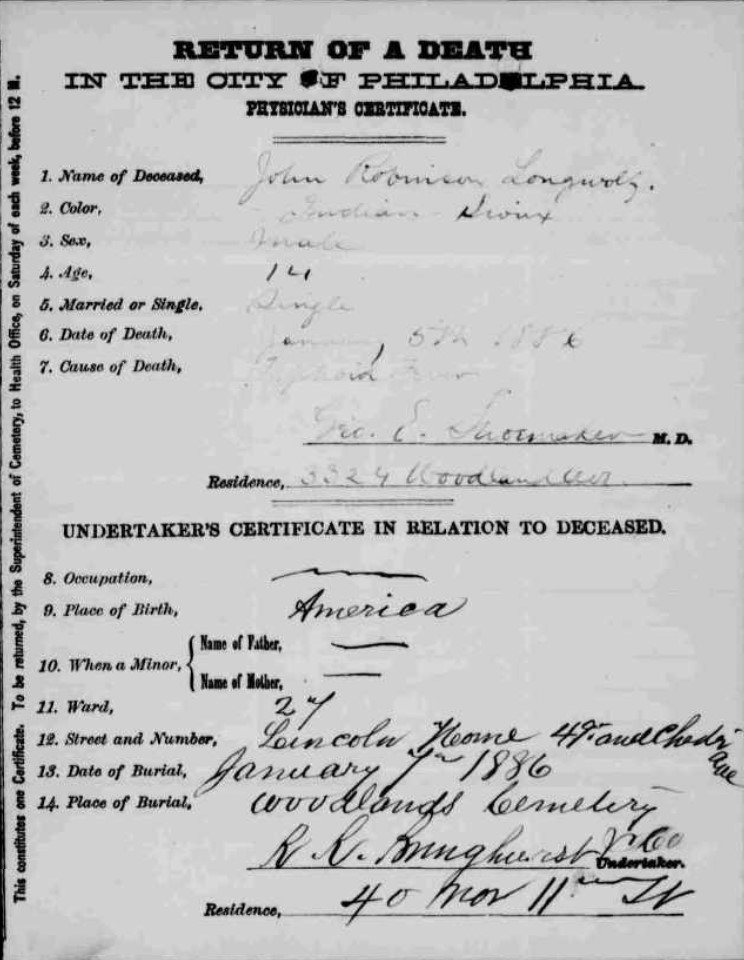 RETURN OF A DEATH
IN THE CITY OF PHILADELPHIA.
PHYSICIAN'S CERTIFICATE.
1. Name of Deceased, John Robinson Longwolf.
2. Color, Indian - Sioux
3. Sex, Male
4. Age, 14
5. Married or Single, Single
6. Date of Death, January 5th 1886
7. Cause of Death, Typhoid Fever
Geo. E. Shoemaker M.D.
Residence, 3324 Woodland Ave.
UNDERTAKER'S CERTIFICATE IN RELATION TO DECEASED.
8. Occupation, —
9. Place of Birth, America
10. When a Minor, { Name of Father, —
Name of Mother, —
11. Ward, 27
12. Street and Number, Lincoln Home and
Ave
13. Date of Burial, January 7th 1886
14. Place of Burial, Woodlands Cemetery
R. R. Bringhurst & Co
Undertaker.
Residence, 40 Nor 11th St
This constitutes one Certificate. To be returned, by the Superintendent of Cemetery, to Health Office, on Saturday of each week, before 12 M.